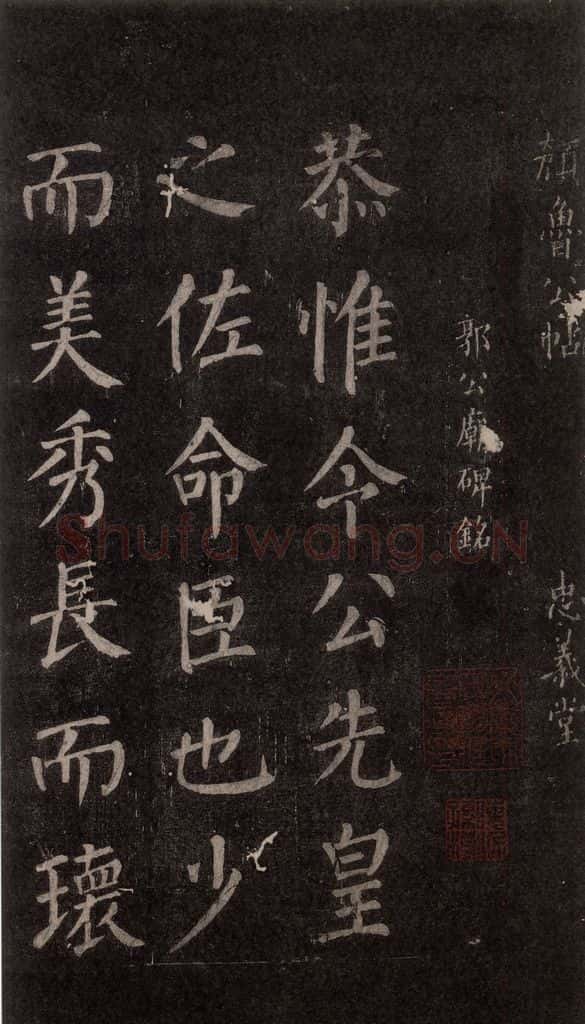 顏魯公帖 忠義堂
郭公廟碑銘
恭惟令公先皇
之佐命臣也少
而美秀長而瓌
Shufawang.CN